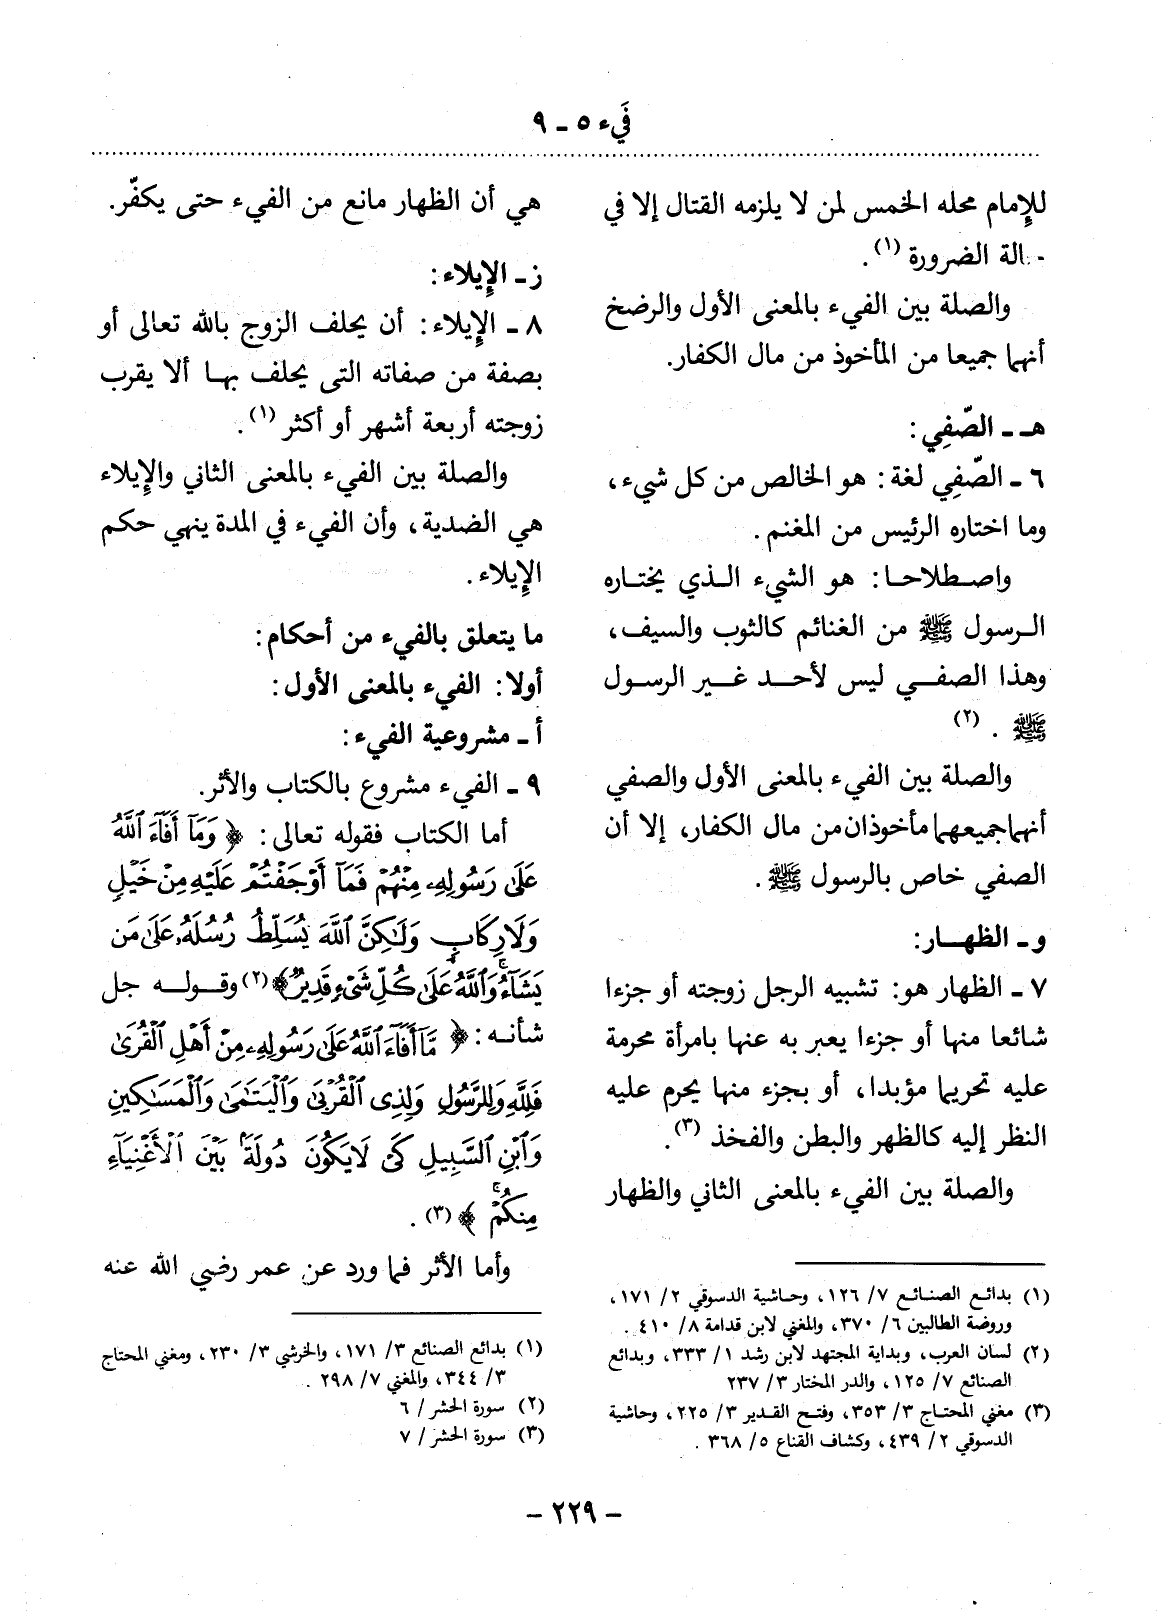 فَيء ٥ ـ ٩
للإمام محله الخمس لمن لا يلزمه القتال إلا في
حالة الضرورة (١) .
والصلة بين الفيء بالمعنى الأول والرضخ
أنهما جميعا من المأخوذ من مال الكفار.
هـ ـ الصّفِي :
٦ ـ الصّفِي لغة : هو الخالص من كل شيء ،
وما اختاره الرئيس من المغنم .
واصطلاحا : هو الشيء الذي يختاره
الرسول ﷺ من الغنائم كالثوب والسيف ،
وهذا الصفي ليس لأحد غير الرسول
ﷺ . (٢)
والصلة بين الفيء بالمعنى الأول والصفي
أنهما جميعهما مأخوذان من مال الكفار، إلا أن
الصفي خاص بالرسول ﷺ .
و ـ الظهار :
٧ ـ الظهار هو : تشبيه الرجل زوجته أو جزءا
شائعا منها أو جزءا يعبر به عنها بامرأة محرمة
عليه تحريما مؤبدا ، أو بجزء منها يحرم عليه
النظر إليه كالظهر والبطن والفخذ (٣).
والصلة بين الفيء بالمعنى الثاني والظهار
(١) بدائع الصنائع ٧/ ١٢٦ ، وحاشية الدسوقي ٢/ ١٧١ ،
وروضة الطالبين ٦/ ٣٧٠، والمغني لابن قدامة ٨/ ٤١٠ .
(٢) لسان العرب، وبداية المجتهد لابن رشد ١/ ٣٣٣، وبدائع
الصنائع ٧/ ١٢٥ ، والدر المختار ٣/ ٢٣٧
(٣) مغني المحتاج ٣/ ٣٥٣، وفتح القدير ٣/ ٢٢٥ ، وحاشية
الدسوقي ٢/ ٤٣٩ ، وكشاف القناع ٥/ ٣٦٨ .
هي أن الظهار مانع من الفيء حتى يكفّر.
ز ـ الإيلاء :
٨ ـ الإيلاء : أن يحلف الزوج بالله تعالى أو
بصفة من صفاته التى يحلف بها ألا يقرب
زوجته أربعة أشهر أو أكثر (١) .
والصلة بين الفيء بالمعنى الثاني والإيلاء
هي الضدية ، وأن الفيء في المدة ينهي حكم
الإيلاء .
ما يتعلق بالفيء من أحكام :
أولا : الفيء بالمعنى الأول :
أ ـ مشروعية الفيء :
٩ ـ الفيء مشروع بالكتاب والأثر.
أما الكتاب فقوله تعالى : ﴿ وَمَآ أَفَآءَ ٱللَّهُ
عَلَىٰ رَسُولِهِۦ مِنْهُمْ فَمَآ أَوْجَفْتُمْ عَلَيْهِ مِنْ خَيْلٍ
وَلَا رِكَابٍ وَلَٰكِنَّ ٱللَّهَ يُسَلِّطُ رُسُلَهُۥ عَلَىٰ مَن
يَشَآءُ ۚ وَٱللَّهُ عَلَىٰ كُلِّ شَىْءٍ قَدِيرٌ﴾ (٢) وقوله جل
شأنه : ﴿ مَّآ أَفَآءَ ٱللَّهُ عَلَىٰ رَسُولِهِۦ مِنْ أَهْلِ ٱلْقُرَىٰ
فَلِلَّهِ وَلِلرَّسُولِ وَلِذِى ٱلْقُرْبَىٰ وَٱلْيَتَٰمَىٰ وَٱلْمَسَٰكِينِ
وَٱبْنِ ٱلسَّبِيلِ كَىْ لَا يَكُونَ دُولَةًۢ بَيْنَ ٱلْأَغْنِيَآءِ
مِنكُمْ ۚ ﴾ (٣) .
وأما الأثر فما ورد عن عمر رضي الله عنه
(١) بدائع الصنائع ٣/ ١٧١ ، والخرشي ٣/ ٢٣٠ ، ومغني المحتاج
٣/ ٣٤٤، والمغني ٧/ ٢٩٨ .
(٢) سورة الحشر / ٦
(٣) سورة الحشر / ٧
- ٢٢٩ -